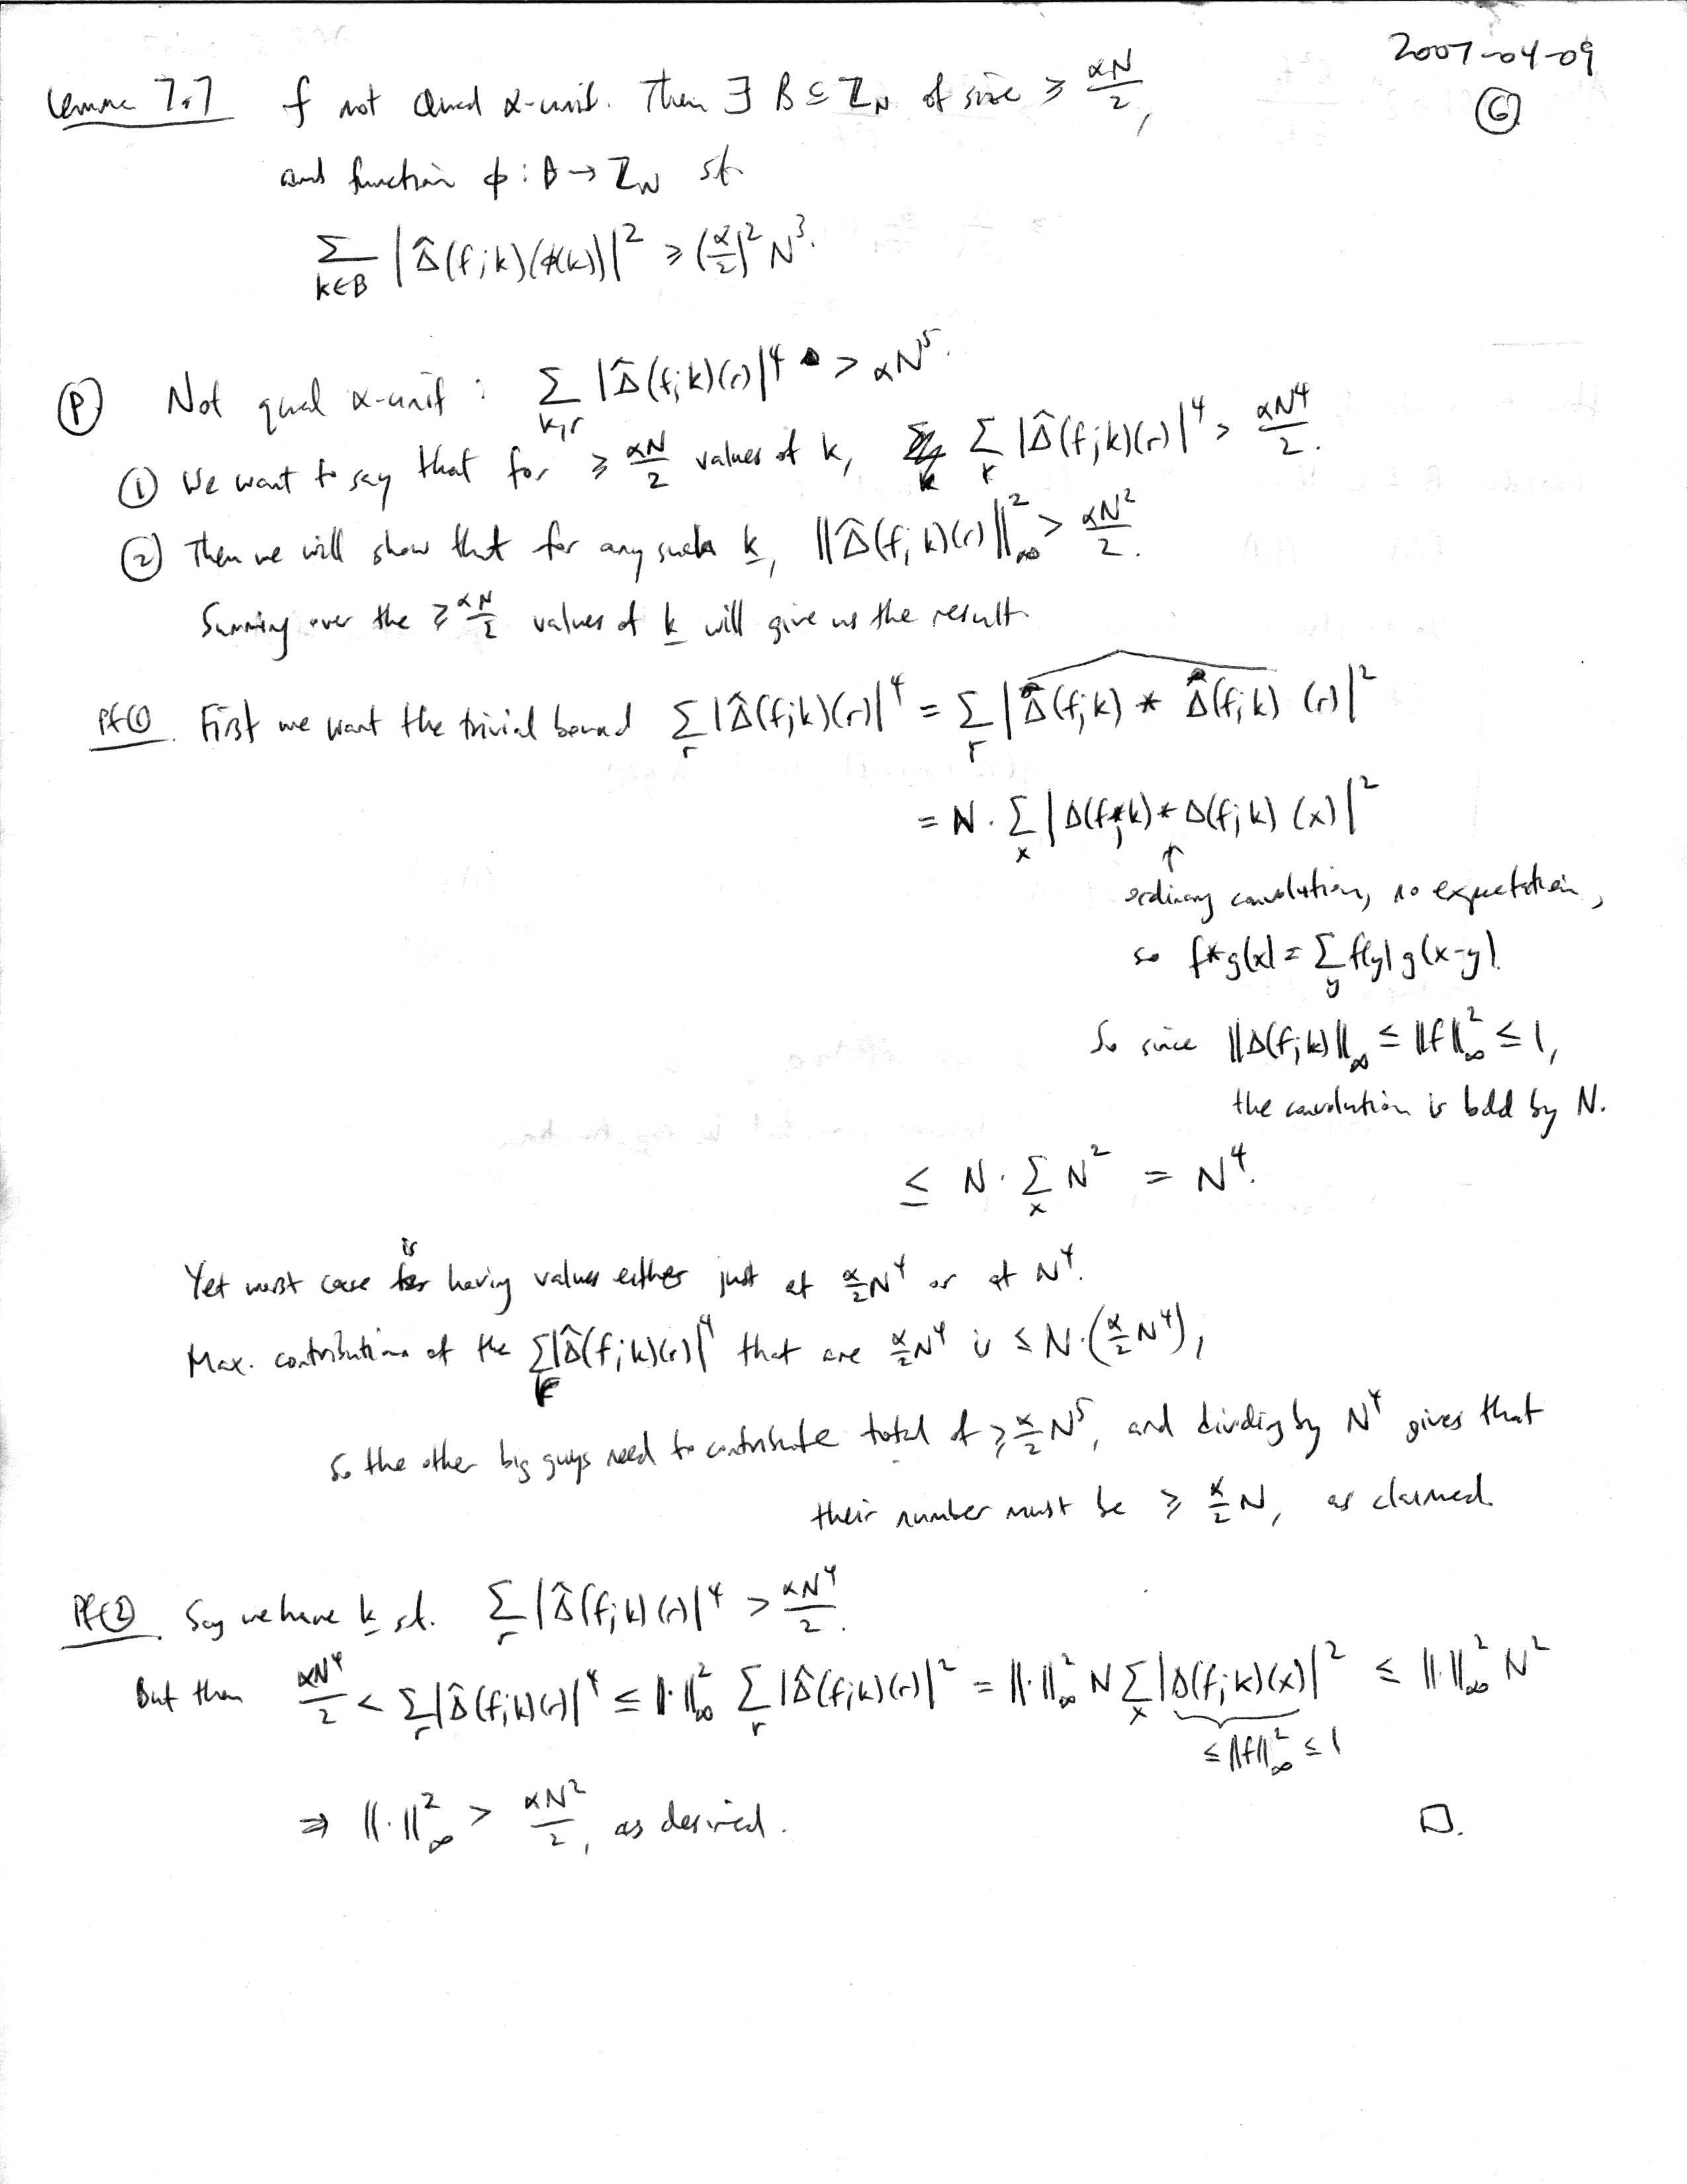 2007-04-09
⑥
Lemma 7.7 f not Quad α-unif. Then ∃ B ⊆ ℤ_N of size ≥ αN/2,
and function φ: B → ℤ_N st.
∑_{k∈B} |Δ̂(f;k)(φ(k))|² ≥ (α/2)² N³.
Ⓟ Not quad α-unif: ∑_{k,r} |Δ̂(f;k)(r)|⁴ > αN⁵.
① We want to say that for ≥ αN/2 values of k, ∑_r |Δ̂(f;k)(r)|⁴ > αN⁴/2.
② Then we will show that for any such k, ‖Δ̂(f;k)(r)‖²_∞ > αN²/2.
Summing over the ≥ αN/2 values of k will give us the result.
Pf① First we want the trivial bound ∑_r |Δ̂(f;k)(r)|⁴ = ∑_r |(Δ(f;k) * Δ(f;k))^ (r)|²
= N · ∑_x |Δ(f;k) * Δ(f;k) (x)|²
↑
ordinary convolution, no expectation,
so f*g(x) = ∑_y f(y) g(x-y).
So since ‖Δ(f;k)‖_∞ ≤ ‖f‖²_∞ ≤ 1,
the convolution is bdd by N.
≤ N · ∑_x N² = N⁴.
Yet worst case is having values either just at α/2 N⁴ or at N⁴.
Max. contribution of the ∑_r |Δ̂(f;k)(r)|⁴ that are α/2 N⁴ is ≤ N·(α/2 N⁴),
So the other big guys need to contribute total of ≥ α/2 N⁵, and dividing by N⁴ gives that
their number must be ≥ α/2 N, as claimed.
Pf② Say we have k st. ∑_r |Δ̂(f;k)(r)|⁴ > αN⁴/2.
But then αN⁴/2 < ∑_r |Δ̂(f;k)(r)|⁴ ≤ ‖·‖²_∞ ∑_r |Δ̂(f;k)(r)|² = ‖·‖²_∞ N ∑_x |Δ(f;k)(x)|² ≤ ‖·‖²_∞ N²
≤ ‖f‖²_∞ ≤ 1
⇒ ‖·‖²_∞ > αN²/2, as desired. □.